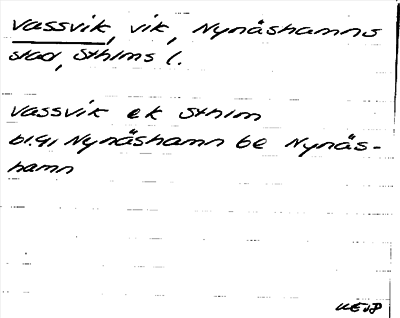 Vassvik, vik, Nynäshamns
stad, Sthlms l.
Vassvik ek Sthlm
bl.91 Nynäshamn be Nynäs-
hamn